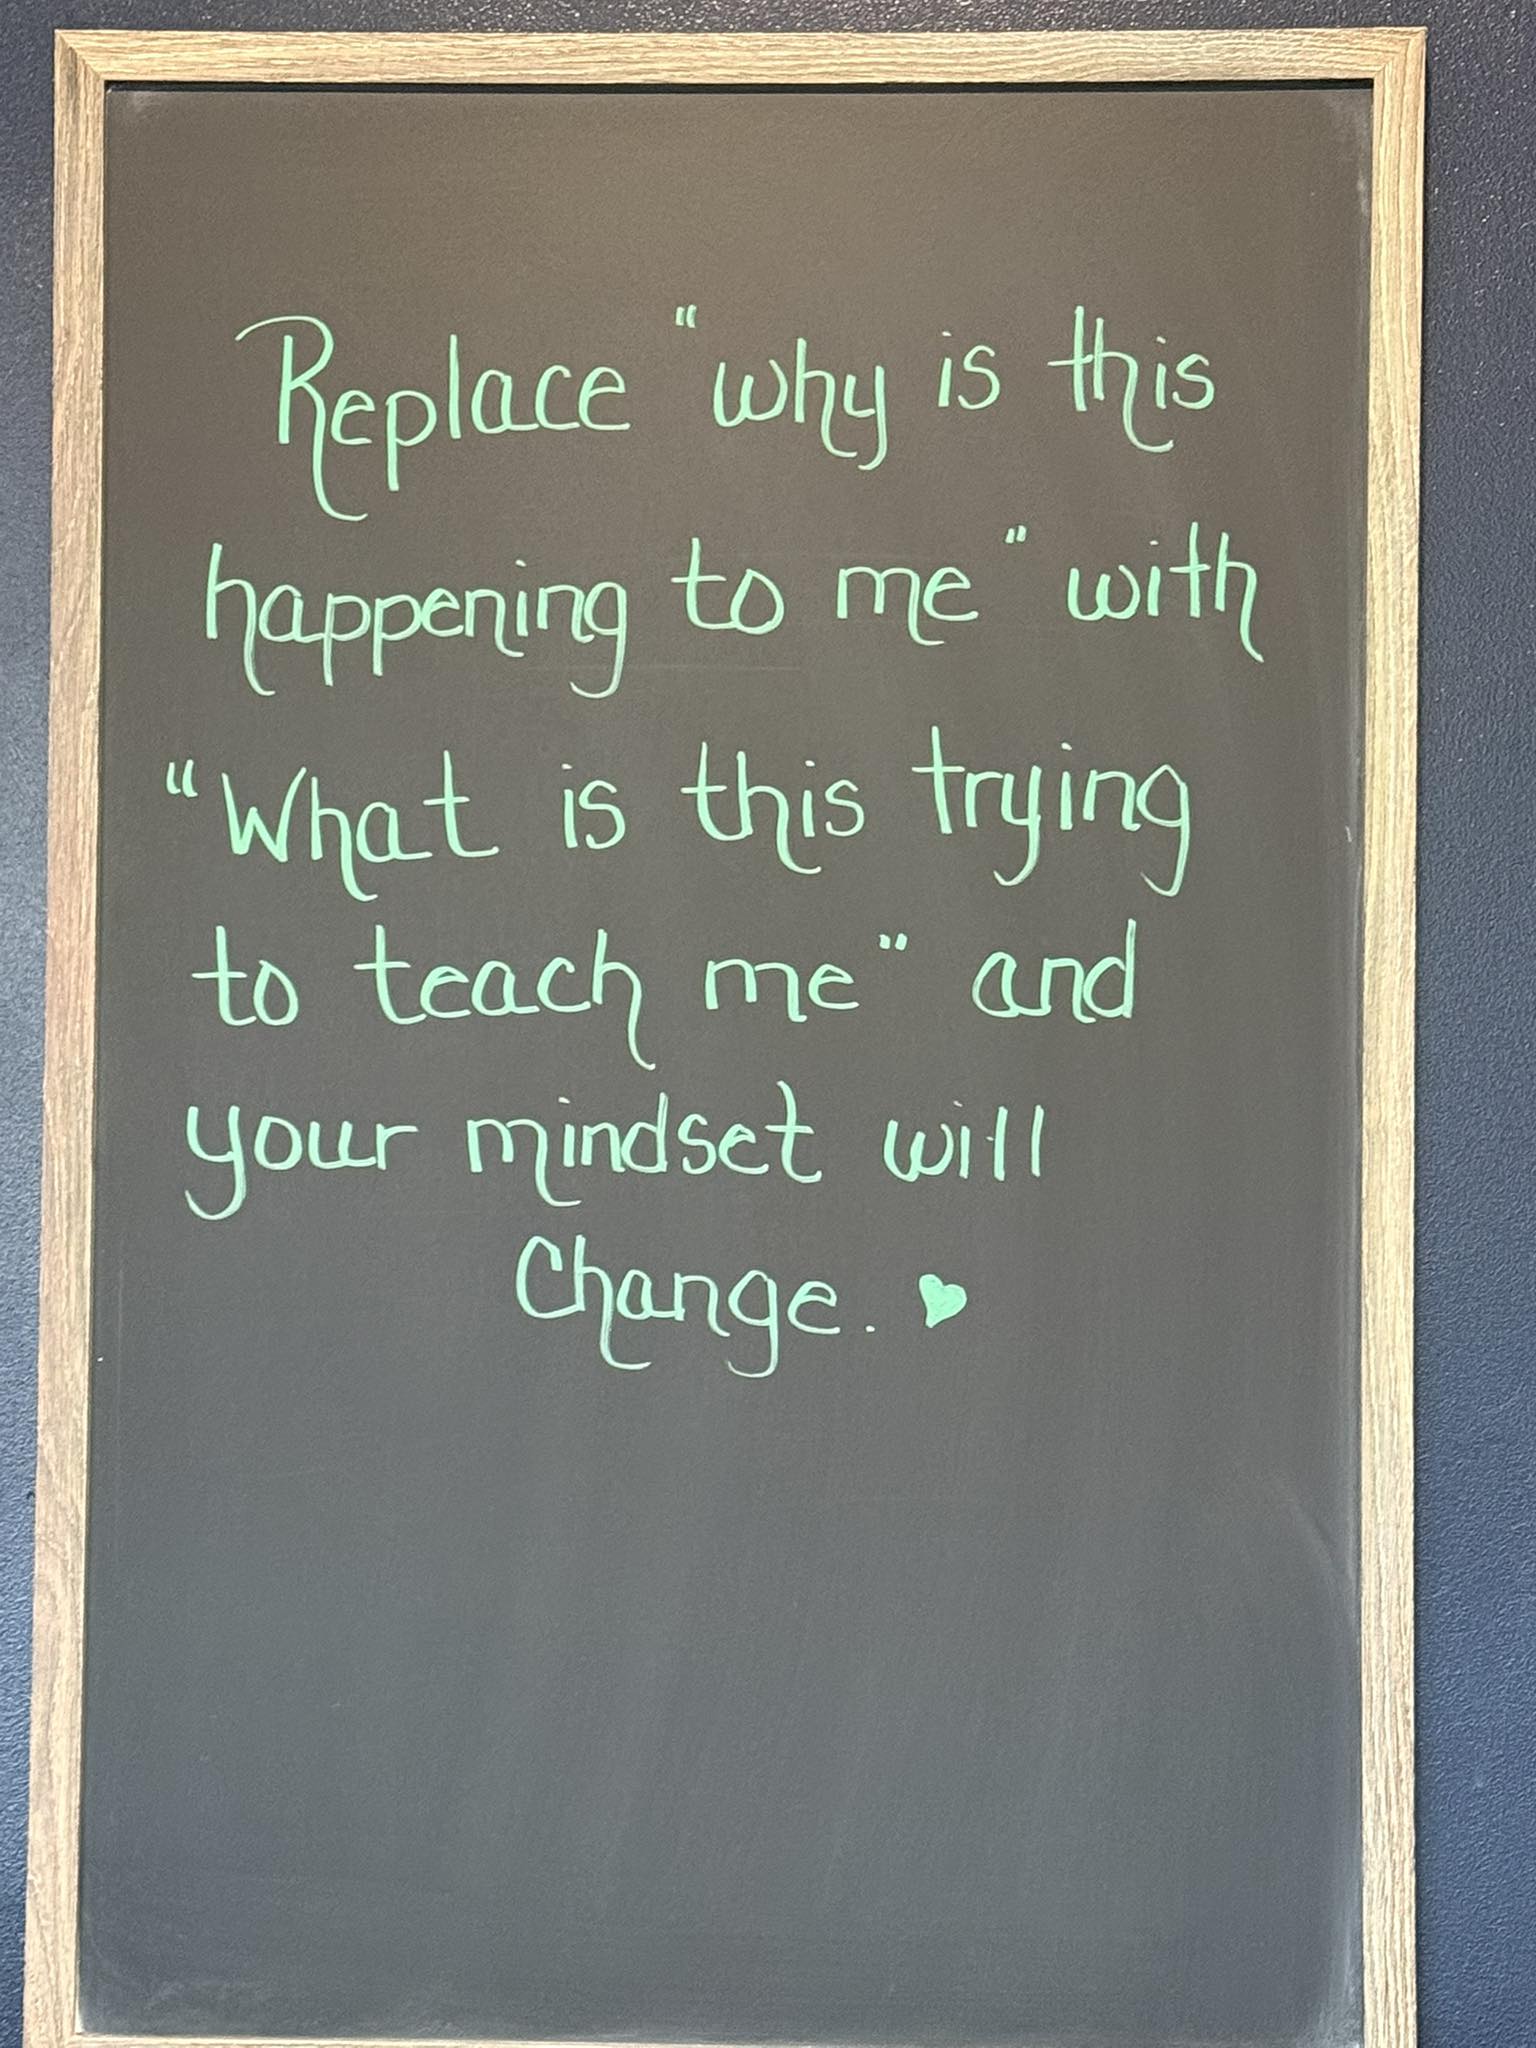 Replace "why is this
happening to me" with
"What is this trying
to teach me" and
your mindset will
Change. ♥